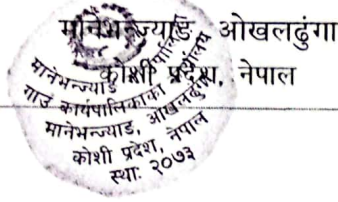 मानेभन्ज्याङ, ओखलढुंगा
कोशी प्रदेश, नेपाल
मानेभन्ज्याङ
गाउँ कार्यपालिकाको कार्यालय
मानेभन्ज्याङ, ओखलढुंगा
कोशी प्रदेश, नेपाल
स्था: २०७३